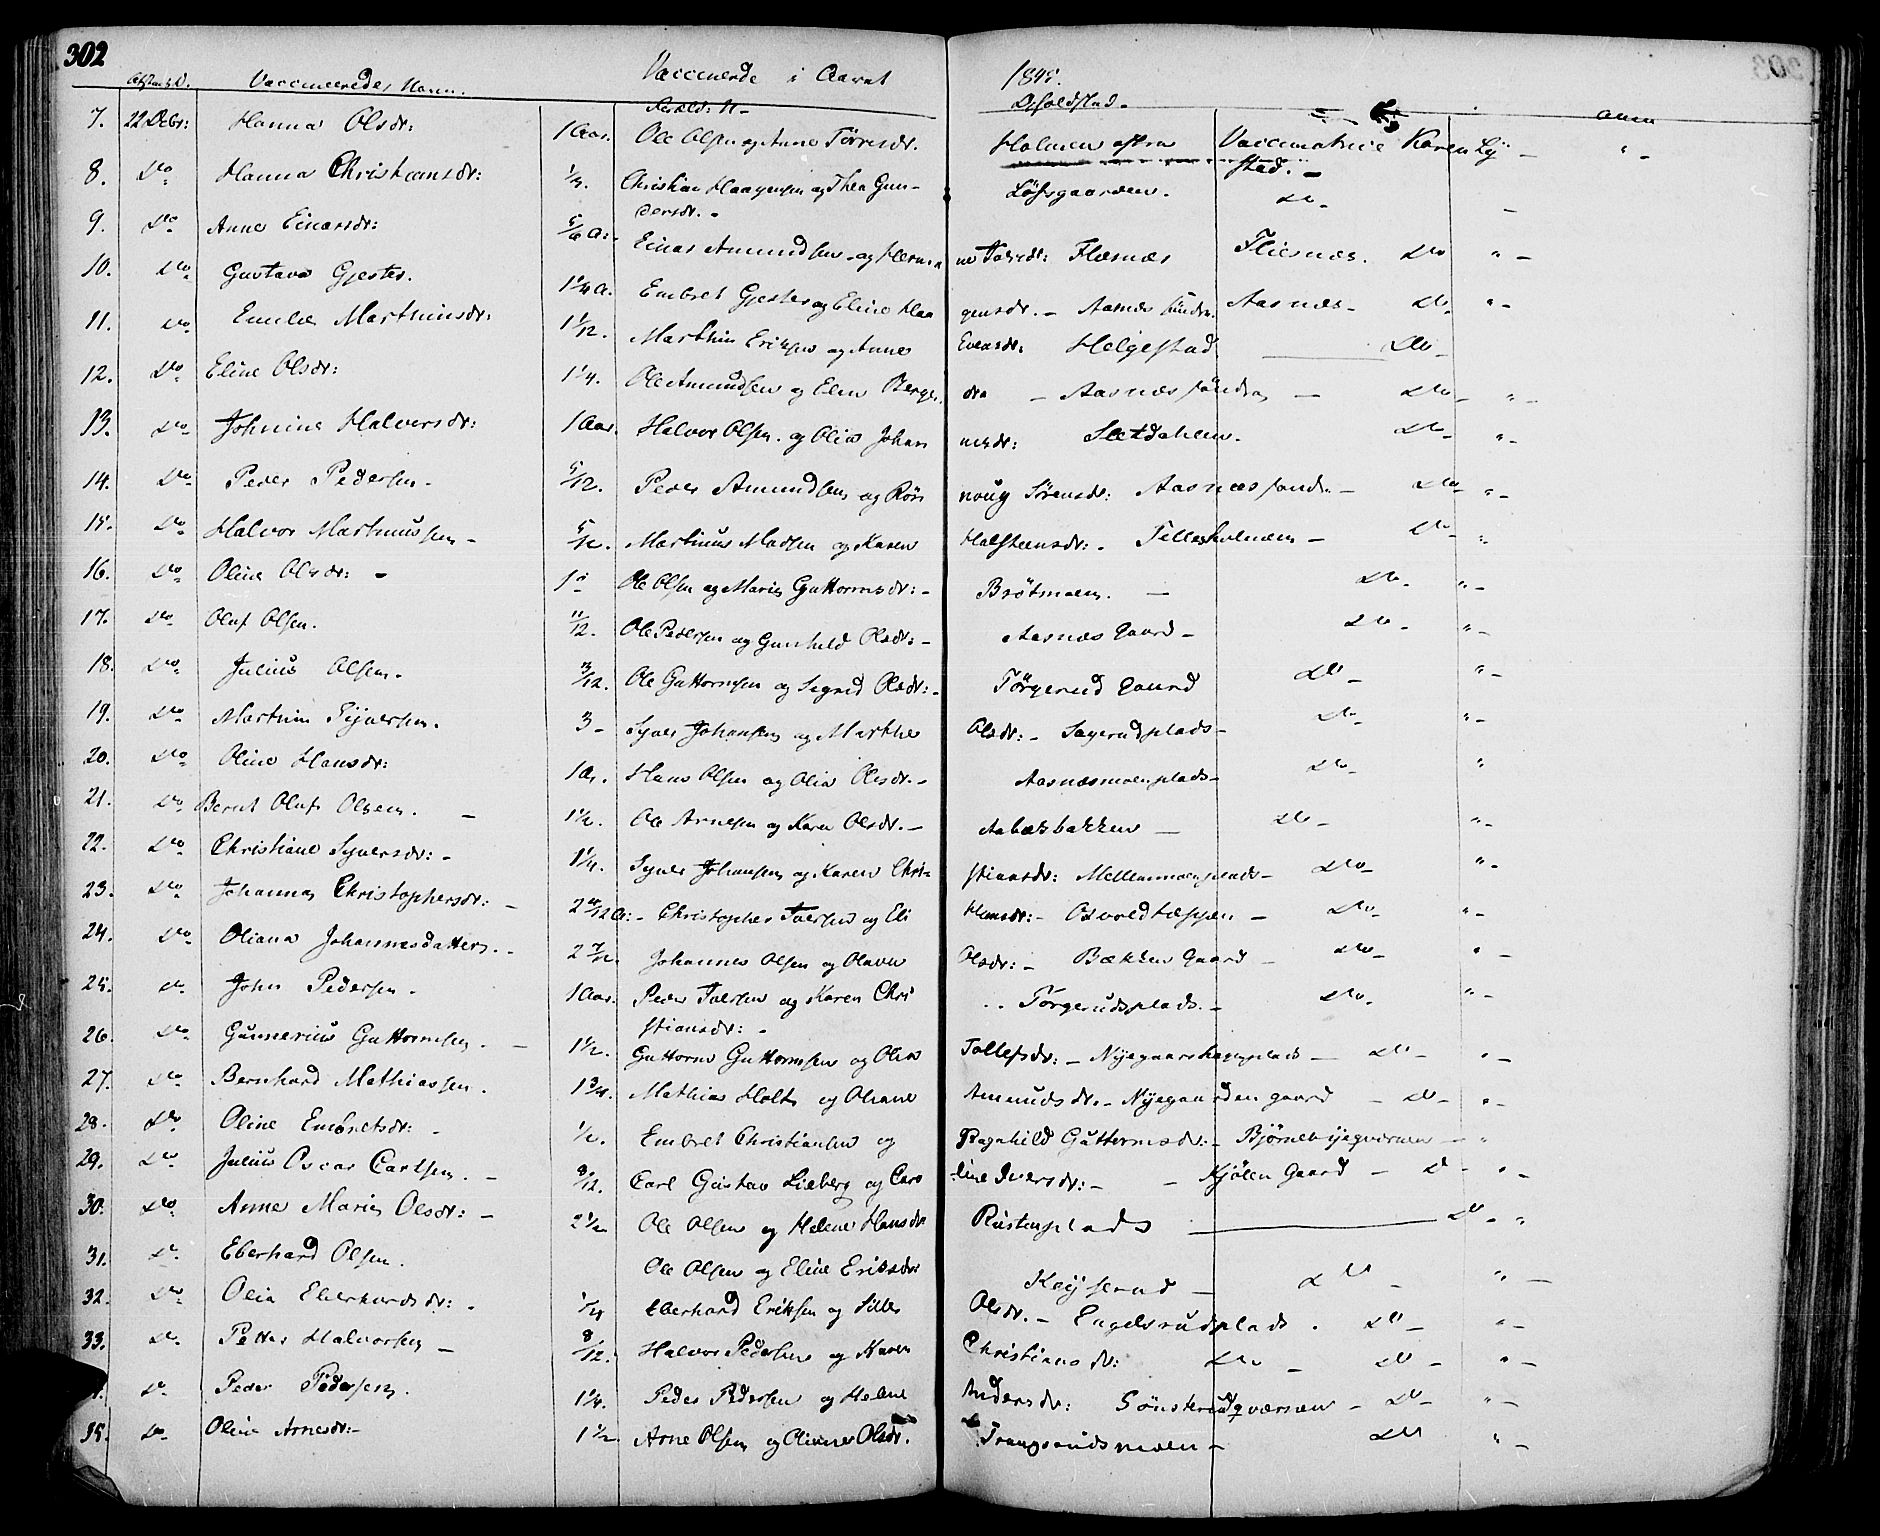 302
Vaccinerede i Aaret 1845.
Attestens D. Vaccineredes Navn. Forældr: N- Opholdsted-
7. 22 Decbr: Hanna Olsdr: 1 Aar. Ole Olsen og Anne Torresdr. Holmen østra Vaccinatrice Karen Ly " -
8. Do Hanna Christiansdr: 1/4. Christian Haagensen og Thea Gun- Løfsgaarden. stad. - Do -
dersdr. -
9. Do Anne Einarsdr: 5/6 A: Einar Amundsen og Flisnæs. Do " -
10. Do Gustava Gjester. 1 1/4 A. Embret Gjester og Eline Haa gensdr. - Aasnæs søndr. Aasnæs - Do " -
11. Do Emilie Marthinsdr: 1 1/12. Marthin Eriksen og Anne Evensdr: Helgestad Do -
12. Do Eline Olsdr: 1 1/4. Ole Amundsen og Elen Berges dr. - Aasnæs søndre - Do - " -
13. Do Johnine Halvorsdr: 1 Aar. Halvor Olsen og Olia Johan nesdr: Sletdahlen. Do - " -
14. Do Peder Pedersen - 5/12. Peder Amundsen og Røn noug Sørensdr: Aasnæs søndr. - Do - " -
15. Do Halvor Martinussen - 5/12. Martinus Madsen og Karen Halsteensdr: - Tellesholmen - Do - "
16. Do Oline Olsdr: - 1 - Ole Olsen og Maria Guttormsdr: - Brøtmoen. - Do - " -
17. Do Oluf Olsen. 11/12. Ole Pedersen og Gunhild Olsdr: - Aasnæs Gaard - Do - " -
18. Do Julius Olsen. 3/12. Ole Guttormsen og Sigrid Olsdr: - Tørgerud Gaard Do - " -
19. Do Martin Syversen. 3 - Syver Johansen og Marthe Olsdr: - Sagerudplads - Do - " -
20. Do Oline Hansdr: 1 A. Hans Olsen og Olia Olsdr. - Aasnæsmoenplads - Do - "
21. Do Bernt Oluf Olsen. - 1 1/2. Ole Arnesen og Karen Olsdr. - Aabakbakken - Do - " -
22. Do Christiane Syversdr: - 1 1/4. Syver Johansen og Karen Chri- stiansdr: Mellemmoenplads - Do - "
23. Do Johanna Christophersdr: - 2 A: - Christopher Iversen og Eli Hansdr: - Osvoldtæppen - Do - " -
24. Do Oliana Johannesdatter. - 2 7/12 Johannes Olsen og Olava Olsdr: - Bækken Gaard - Do - " -
25. Do John Pedersen - 1 Aar. Peder Iversen og Karen Chri Tørgerudsplads. - Do - " -
stiansdr: -
26. Do Gunnerius Guttormsen. - 1 1/2. Guttorm Guttormsen og Olia Tollefsdr: - Nyegaardsplads - Do - " -
27. Do Bernhard Mathiassen. 1 3/4. Mathias Holt og Oliane Amundsdr. - Nyegaarden gaard - Do - " -
28. Do Oline Embretsdr: - 1/2. Embret Christiansen og Ragnhild Guttormsdr: - - "
29. Do Julius Oscar Carlsen. - 8/12. Carl Gustav Lieberg og Caro line Iversdr: - - Kjølen Gaard - D - " -
30. Do Anne Maria Olsdr: - 2 1/2 Ole Olsen og Helene Hansdr Rustenplads Do - "
31. Do Eberhard Olsen. Ole Olsen og Eline Eriksdr: Keyserud - Do - " -
32. Do Olia Eberhardsdr: - 1/4 Eberhard Eriksen og Sille Olsdr. - Engelsrudplads. Do - " -
33. Do Petter Halvorsen - 8/12. Halvor Pedersen og Karen Christiansdr: Do - Do - " -
Do Peder Pedersen. 1 1/4. Peder Pedersen og Helene Andersdr: Sønsterudqværnen - Do - " -
35. Do Oline Arnesdr: - 1 1/2 Arne Olsen og Oliane Olsdr. Trangsrudsmoen - Do " -